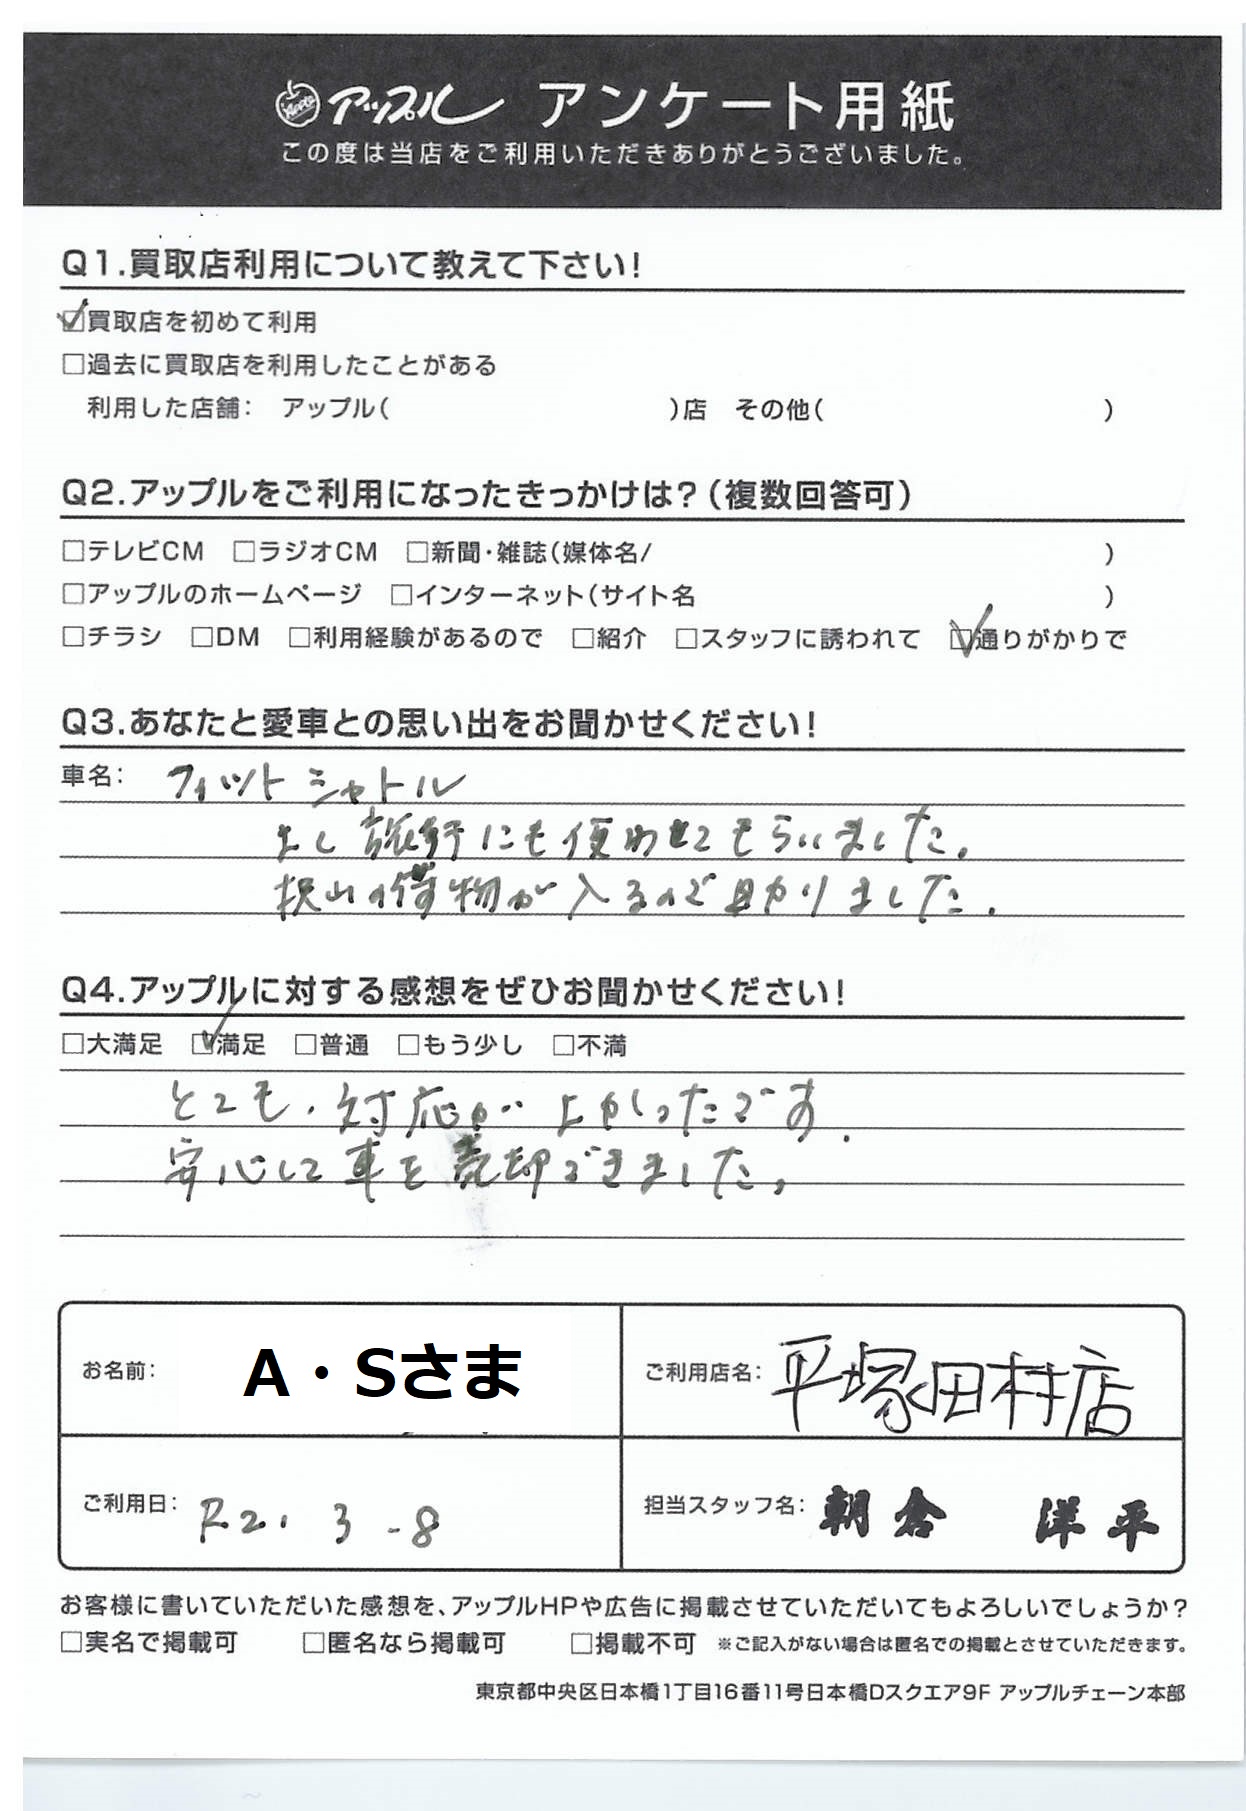 アップル アンケート用紙
この度は当店をご利用いただきありがとうございました。
Q1.買取店利用について教えて下さい!
☑買取店を初めて利用
□過去に買取店を利用したことがある
利用した店舗: アップル( )店 その他( )
Q2.アップルをご利用になったきっかけは?(複数回答可)
□テレビCM □ラジオCM □新聞・雑誌(媒体名/ )
□アップルのホームページ □インターネット(サイト名 )
□チラシ □DM □利用経験があるので □紹介 □スタッフに誘われて ☑通りがかりで
Q3.あなたと愛車との思い出をお聞かせください!
車名: フィットシャトル
よく旅行にも使わせてもらいました。
沢山の荷物が入るので助かりました.
Q4.アップルに対する感想をぜひお聞かせください!
□大満足 ☑満足 □普通 □もう少し □不満
とても、対応がよかったです.
安心して車を売却できました。
お名前: A・Sさま
ご利用店名: 平塚田村店
ご利用日: R2. 3 -8
担当スタッフ名: 朝倉 洋平
お客様に書いていただいた感想を、アップルHPや広告に掲載させていただいてもよろしいでしょうか?
□実名で掲載可 □匿名なら掲載可 □掲載不可 ※ご記入がない場合は匿名での掲載とさせていただきます。
東京都中央区日本橋1丁目16番11号日本橋Dスクエア9F アップルチェーン本部